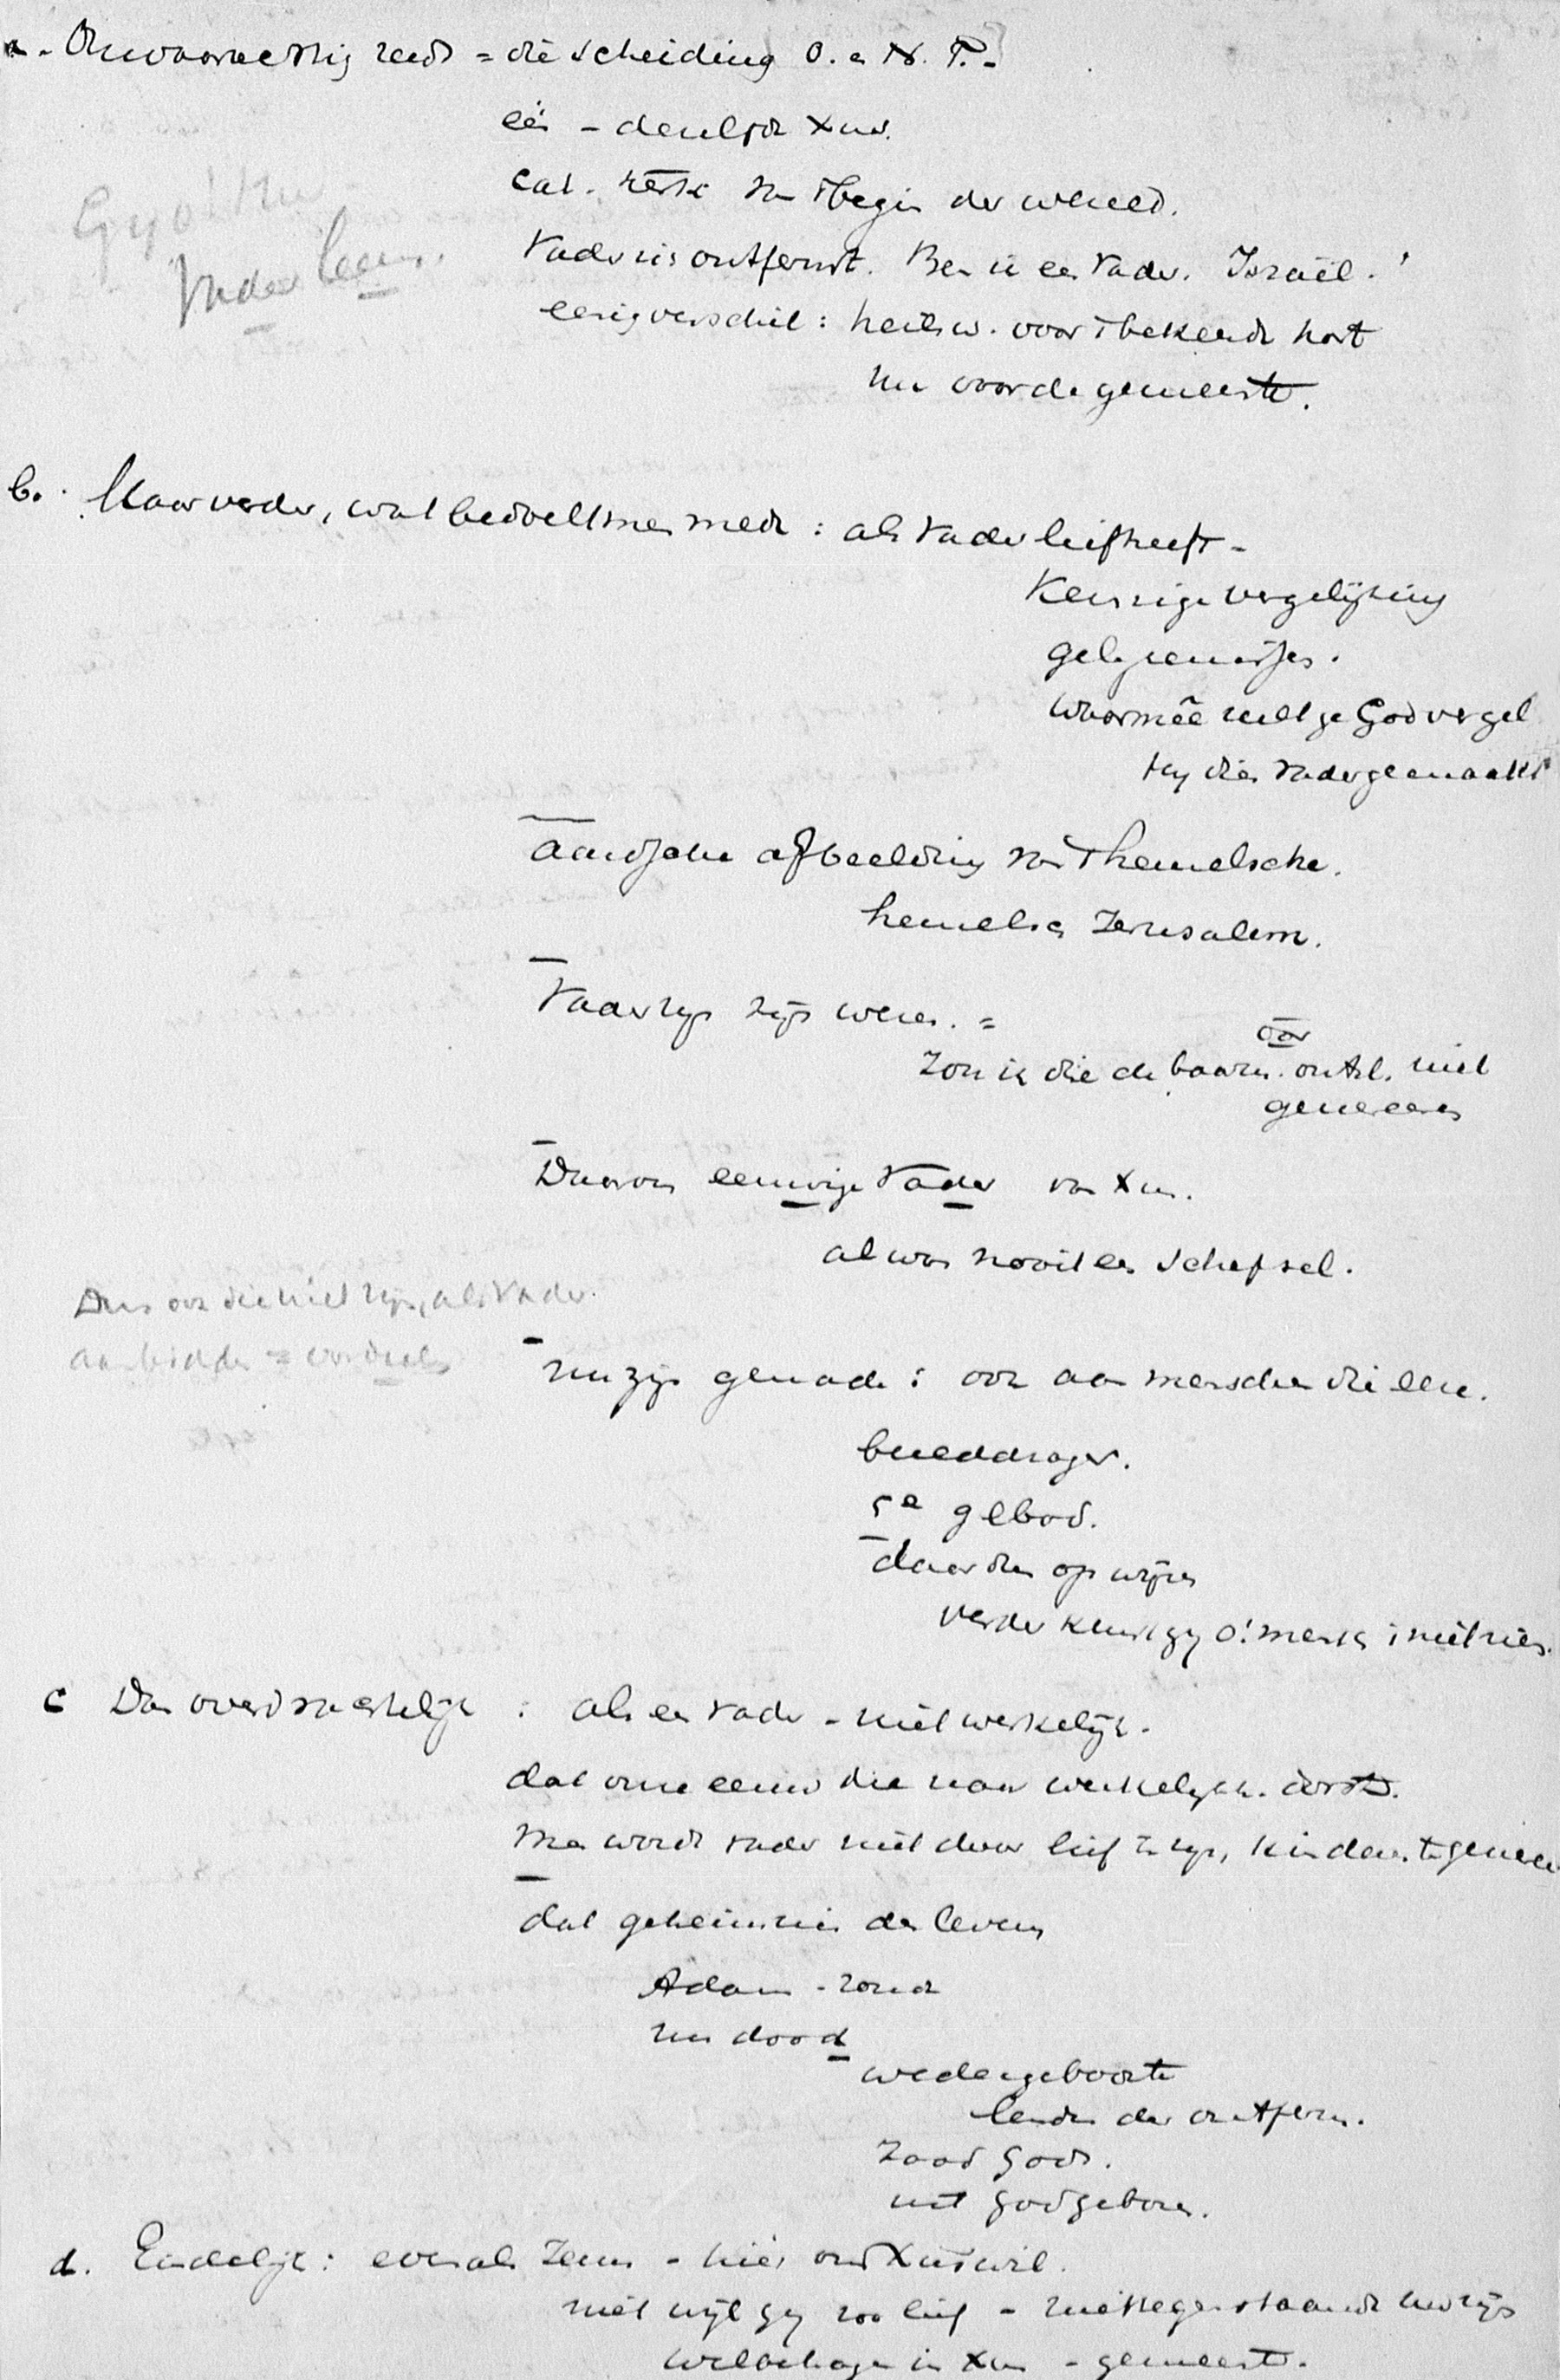 a. Onwaarachtig reeds = die scheiding O. e N. T.
één - dezelfde Xus.
cat. kerk van 't begin der wereld.
Vader is ontfermt. Ben ik een Vader. Israël.
eenig verschil: heilsw. voor 't bekeerde hart
nu voor de gemeente.
Vader leeren.
b. Maar verder, wat bedoelt men mede: als Vader lief heeft -
Ken enige vergelijking
gelijkenisjes.
waarmêe wilt ge God vergel
Hy dien Vader gemaakt
aardsche afbeelding van 't hemelsche.
hemelsch Jeruzalem.
Vader zijn zijn wezen. =
Zon is die de baarm. ontsl. niet
oor
genereeren
Daarom eeuwige Vader van Xus.
al was nooit een schepsel.
Dus ook die niet zijn, als Vader
aanbidden = oordeel
nu zijn genade: ook aan menschen die eere.
beelddrager.
5e gebod.
daar dan op wijzen
verder kunt gy o! mensch niet zien.
c Dan overdrachtelijk : als een vader - niet werkelijk.
dat onze eeuw die naar werkelijkh. dorst.
Men wordt vader niet door lief te zijn, kinderen te gener
dat geheimnis des levens
Adam - zonde
nu dood
wedergeboorte
leden der ontferm.
Zaad Gods.
uit God geboren.
d. Eindelijk: evenals Zeus - hier om Xus wil.
niet wijl gy zoo lief - niettegenstaande uw zijn
welbehagen in Xus - gemeente.